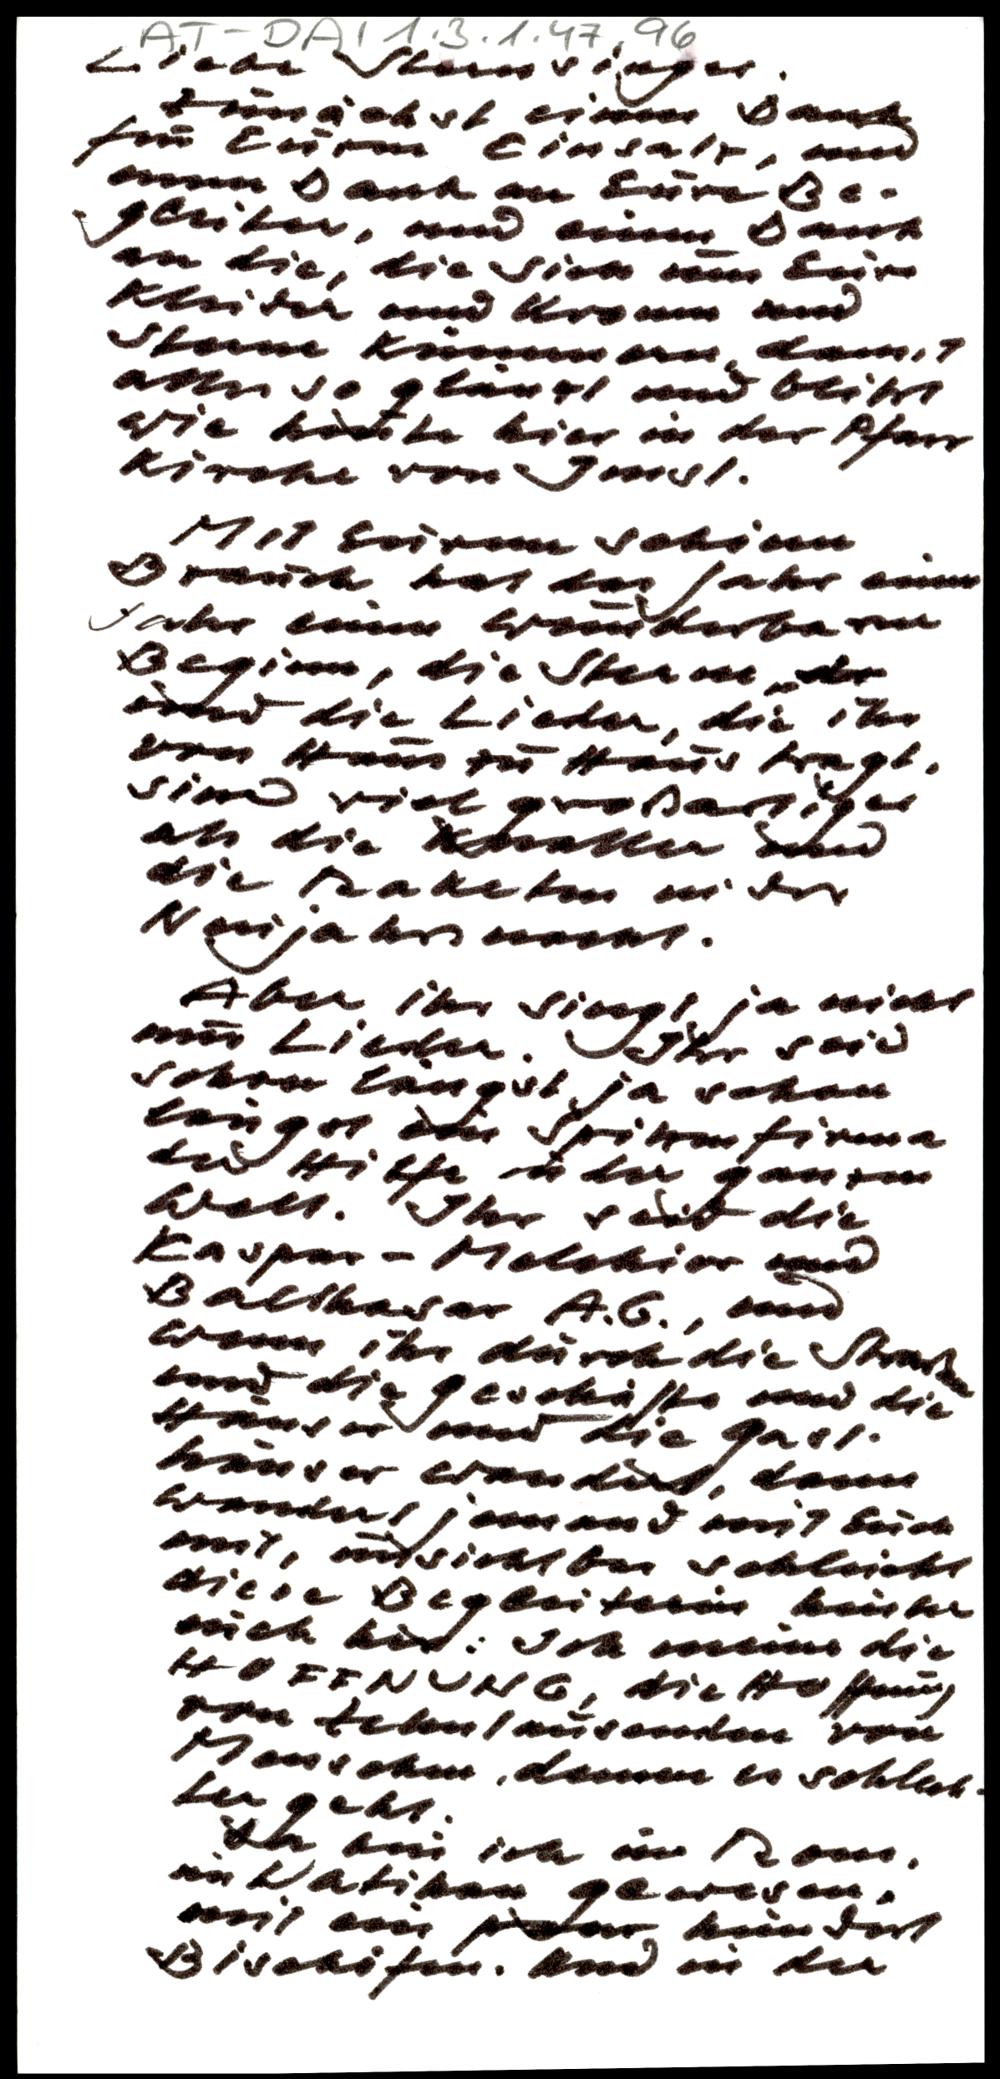 AT-DAI 1.3.1.47.96
Liebe Sternsinger.
Zunächst einen Dank
für Euren Einsatz, und
einen Dank an Eure Be-
gleiter, und einen Dank
an die, die sich um Eure
Kleider und Kronen und
Sterne kümmern, damit
alles so glänzt und blitzt
wie heute hier in der Pfarr
Kirche von Imst.
Mit Eurem schönen
Brauch hat das Jahr einen
Jahr einen wunderbaren
Beginn, die Sterne, der
und die Lieder, die ihr
von Haus zu Haus tragt,
sind viel großartiger
als die Knaller und
die Raketen in der
Neujahrsnacht.
Aber ihr singt ja nicht
nur Lieder. Ihr seid
schon längst, ja schon
längst eine Spitzenfirma
der Hilfe in der ganzen
Welt. Ihr seid die
Kaspar- Melchior und
Balthasar A.G., und
wenn ihr durch die Straßen
und die Geschäfte und die
Häuser und die Gast-
häuser wandert, dann
wandert jemand mit Euch
mit, unsichtbar schleicht
diese Begleiterin hinter
euch her: Ich meine die
HOFFNUNG, die Hoffnung
von Zehntausenden von
Menschen, denen es schlech-
ter geht.
Da bin ich in Rom,
im Vatikan gewesen,
mit ein paar hundert
Bischöfen. Und in der